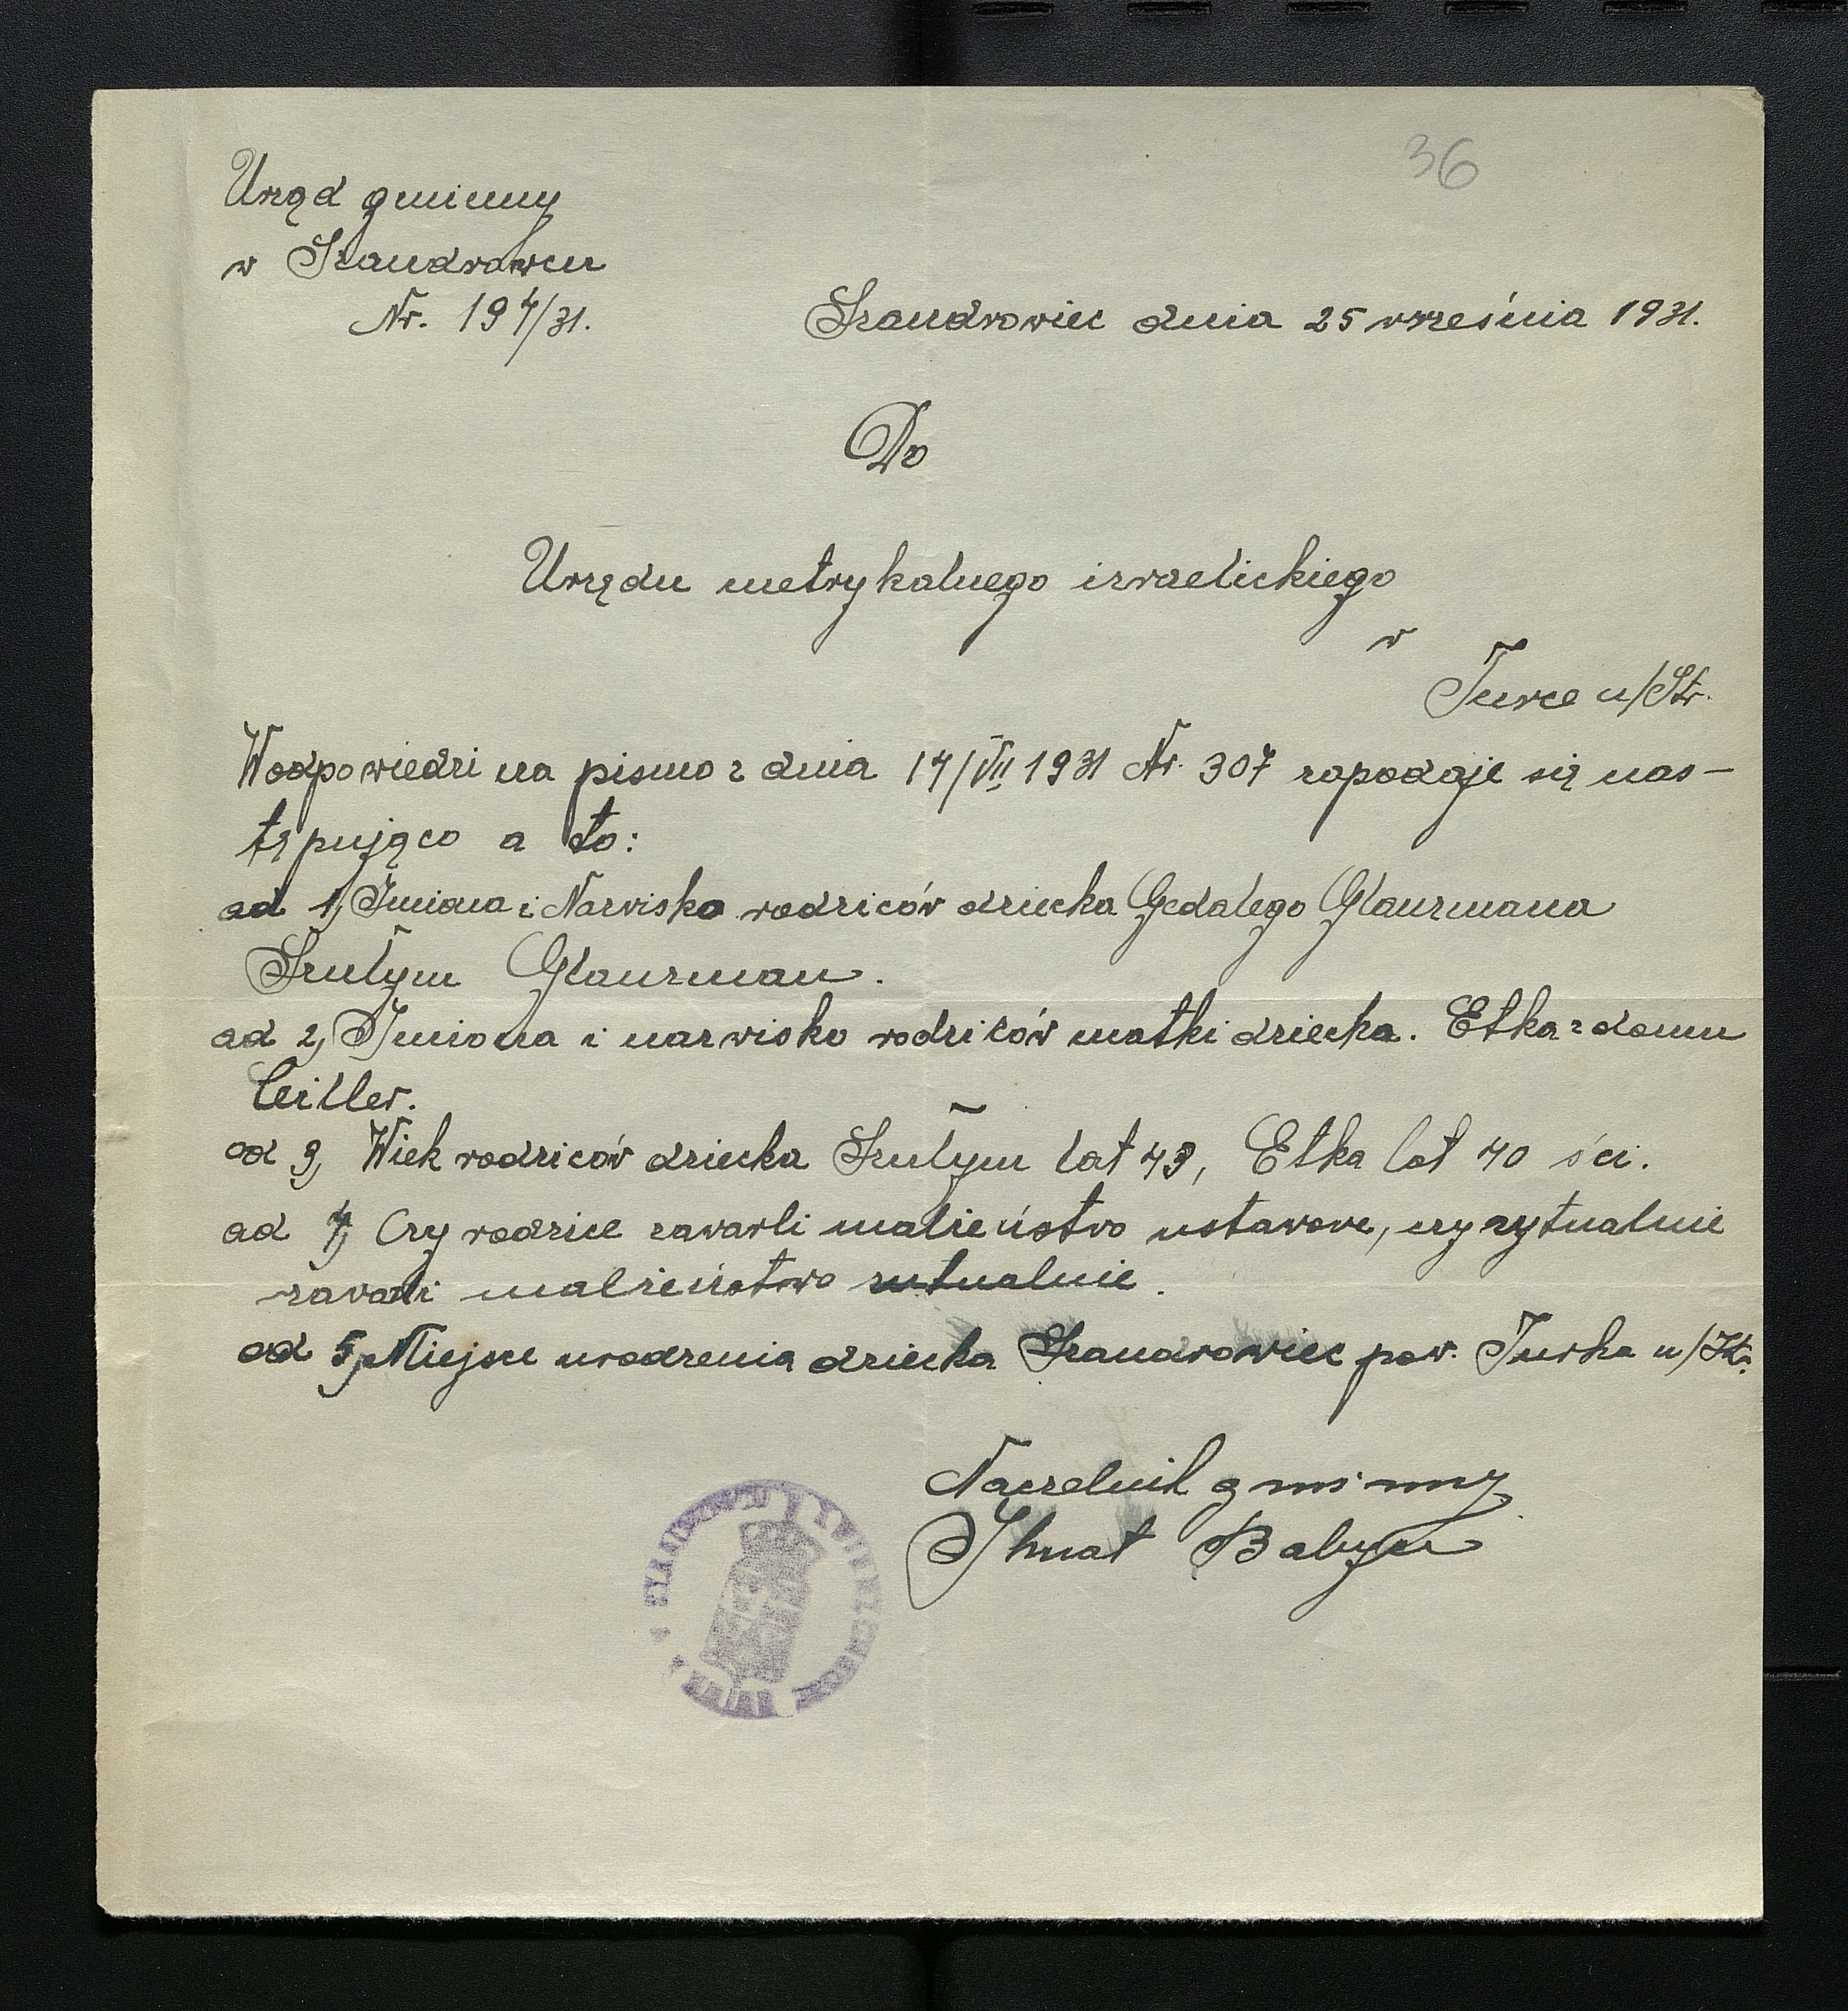 36
Urząd gminny
w Szandrowcu
Nr. 194/31.
Szandrowiec dnia 25 września 1931.
Do
Urzędu metrykalnego izraelickiego
w
Turce n/Str.
W odpowiedzi na pismo z dnia 14/VII 1931 Nr. 307 zapodaje się nas-
tępująco a to:
ad 1, Imiona i Nazwisko rodziców dziecka Gedalego Glanzmana
Szulym Glanzman.
ad 2, Imiona i nazwisko rodziców matki dziecka. Etka z domu
Ceiller.
ad 3, Wiek rodziców dziecka Szulym lat 43, Etka lat 40 ści.
ad 4, Czy rodzice zawarli małżeństwo ustawowe, czy rytualnie
zawarli małżeństwo rutualnie.
ad 5, Miejsce urodzenia dziecka Szandrowiec pow. Turka n/Str.
Naczelnik gminny
Ihnat